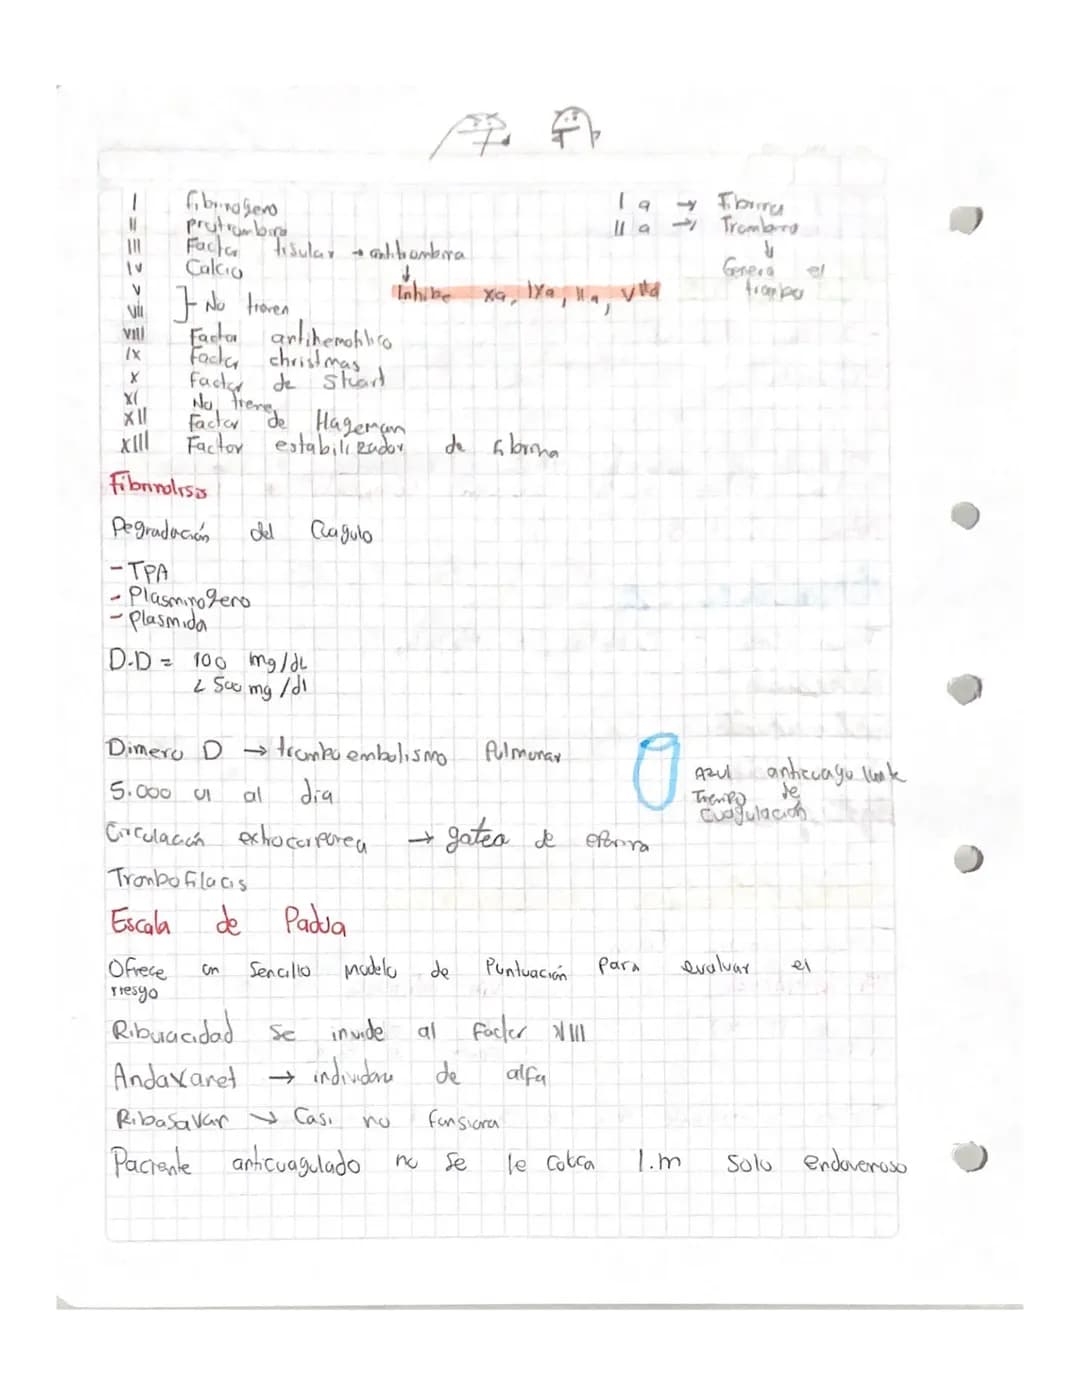 I fibrinogeno
II protrombina
III Factor tisular → antitrombina
IV Calcio
Inhibe xa, IXa, IIa, VIIa
V
VII } No tienen
VIII Factor antihemofilico
IX Factor christmas
X Factor de Stuart
XI No tiene
XII Factor de Hageman
XIII Factor estabilizador de fibrina
I a → Fibrina
II a → Trombina
↓
Genera el
trombo
Fibrinolisis
Degradación del Coagulo
- TPA
- Plasminogeno
- Plasmida
D.D = 100 mg/dL
< 500 mg/dl
Dimero D → tromboembolismo Pulmonar
5.000 UI al dia
Azul anticuagulante
Tiempo de
Cuagulación
Circulación extracorporea →  de
Trombofilacis
Escala de Padua
Ofrece un Sencillo modelo de Puntuación para evaluar el
riesgo
se al factor
Andaxanet → de alfa
Ribasavar → Casi no funsiona
Paciente anticuagulado no se le coloca I.m solo endovenoso